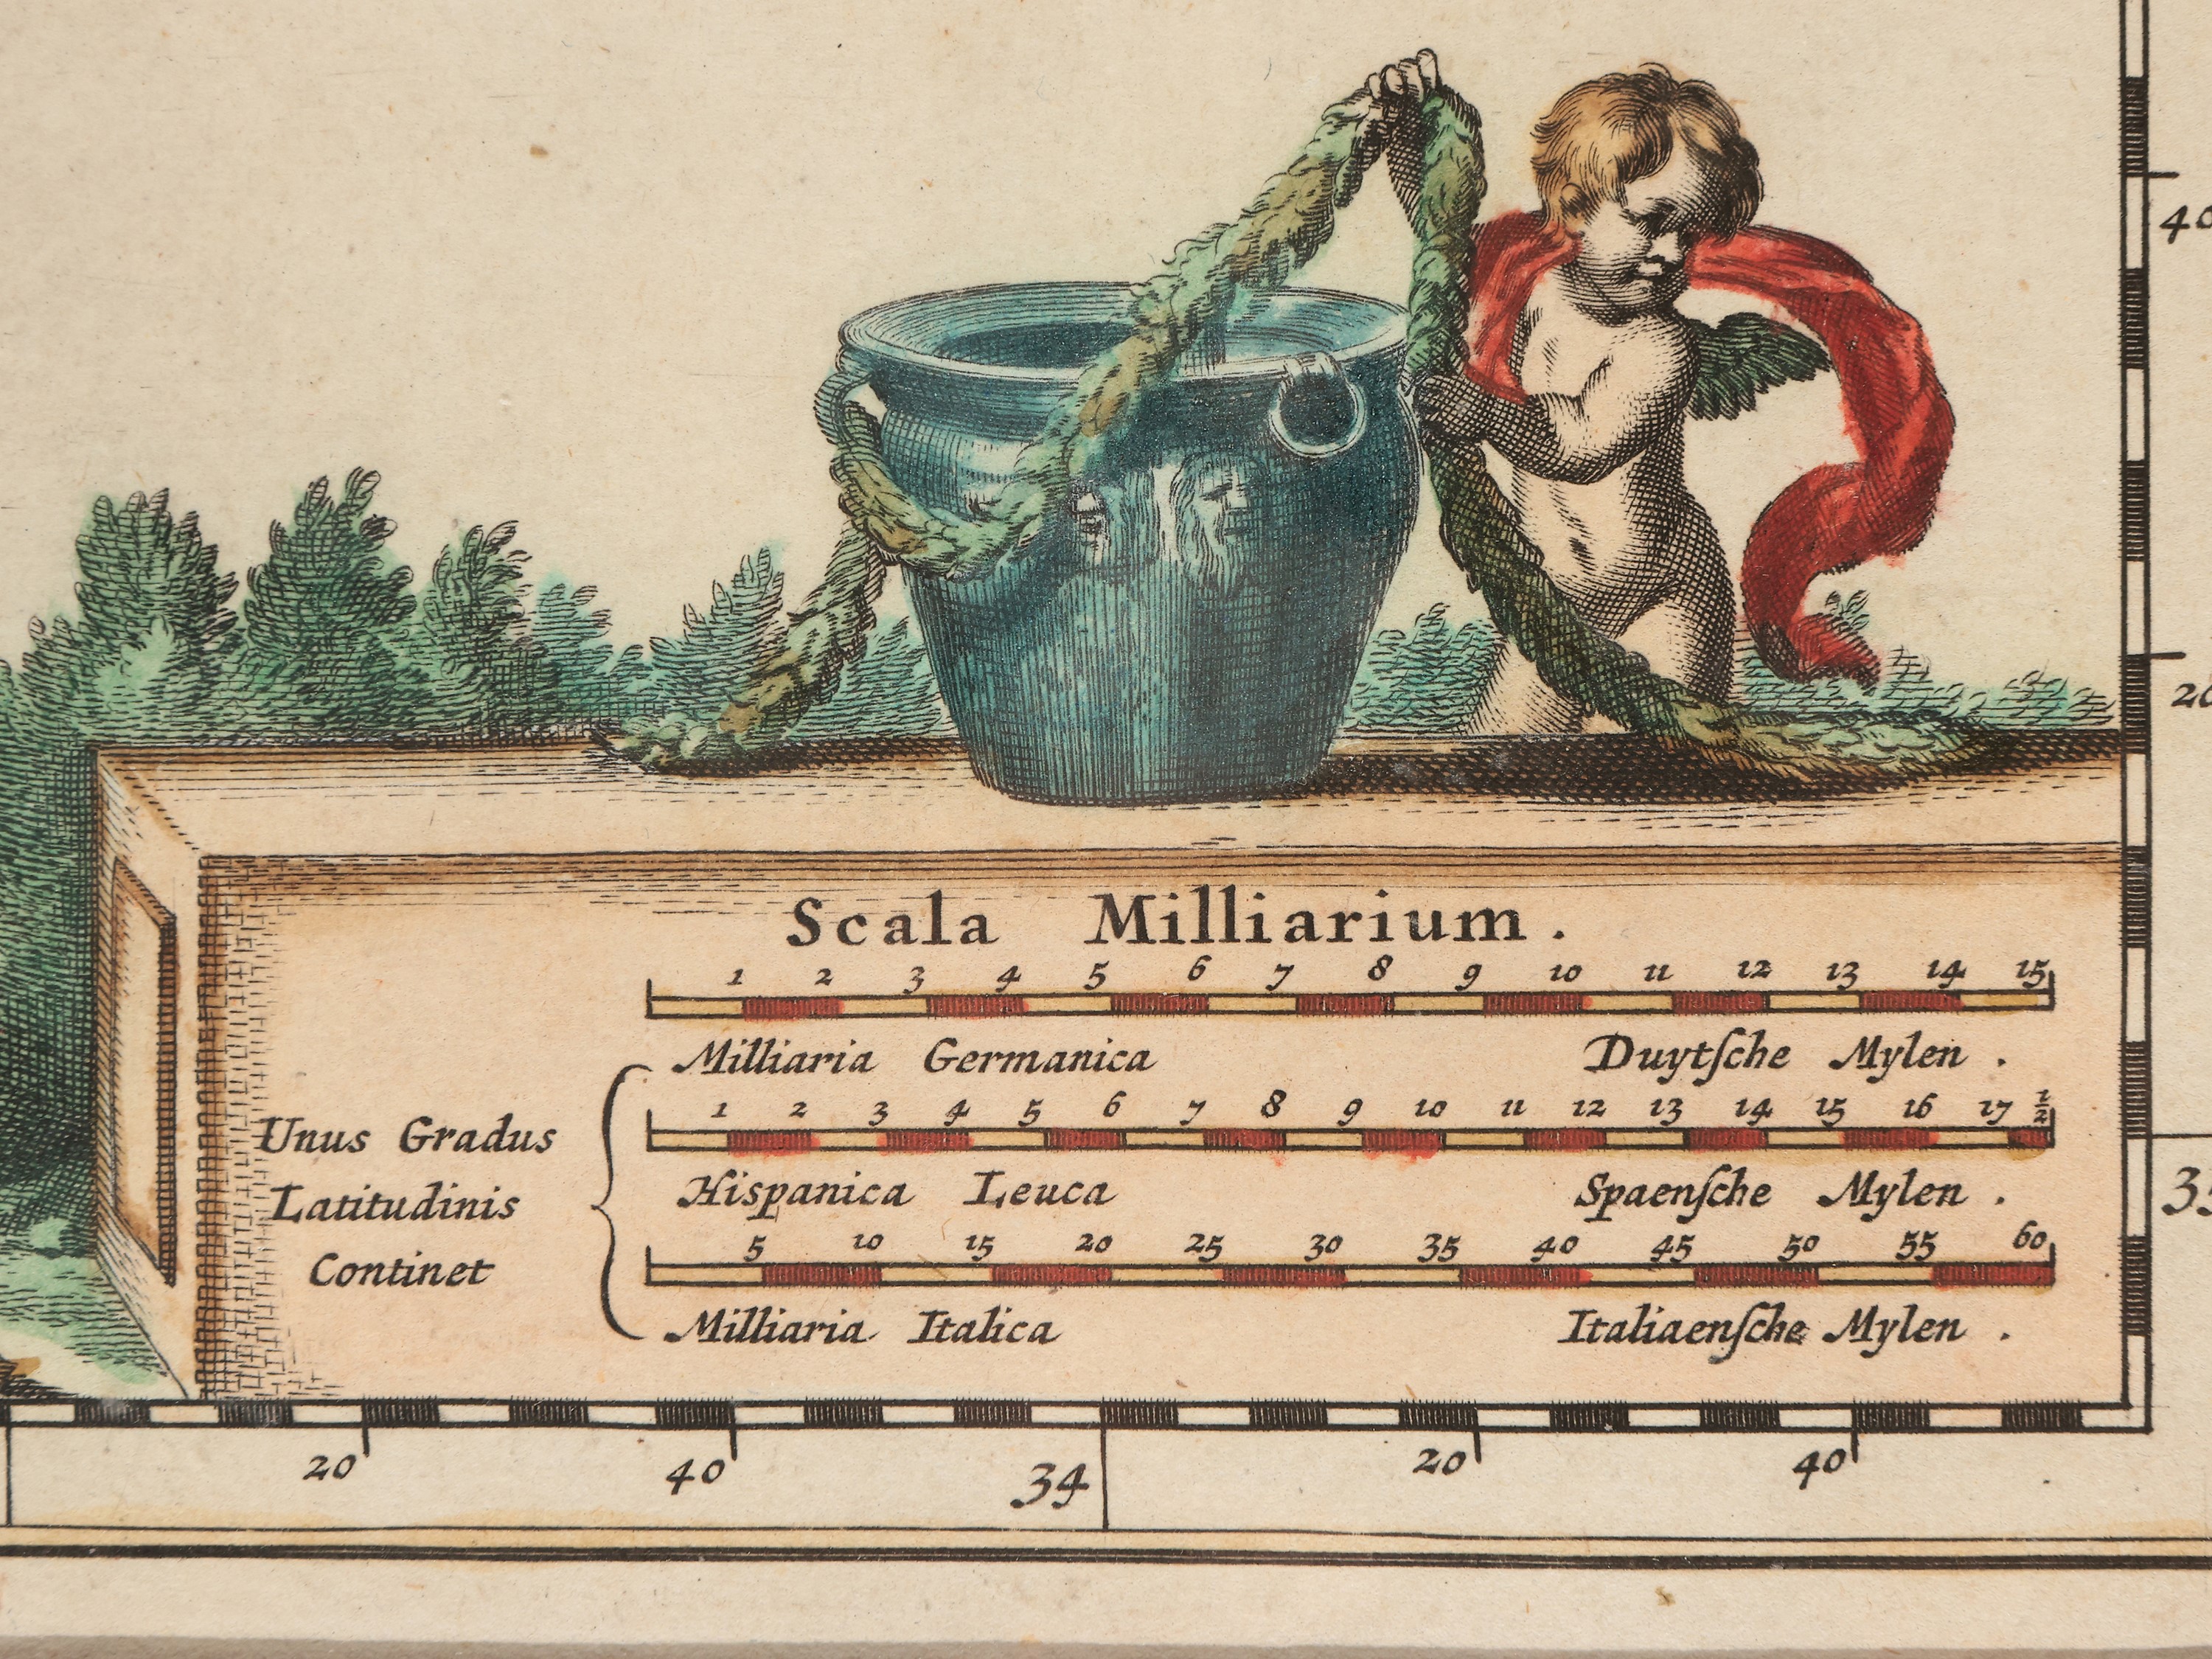 40
20
Scala Milliarium.
1 2 3 4 5 6 7 8 9 10 11 12 13 14 15
Milliaria Germanica Duytſche Mylen.
1 2 3 4 5 6 7 8 9 10 11 12 13 14 15 16 17 ½
Unus Gradus
Latitudinis
Continet
Hispanica Leuca Spaenſche Mylen.
35
5 10 15 20 25 30 35 40 45 50 55 60
Milliaria Italica Italiaenſche Mylen.
20 40 34 20 40